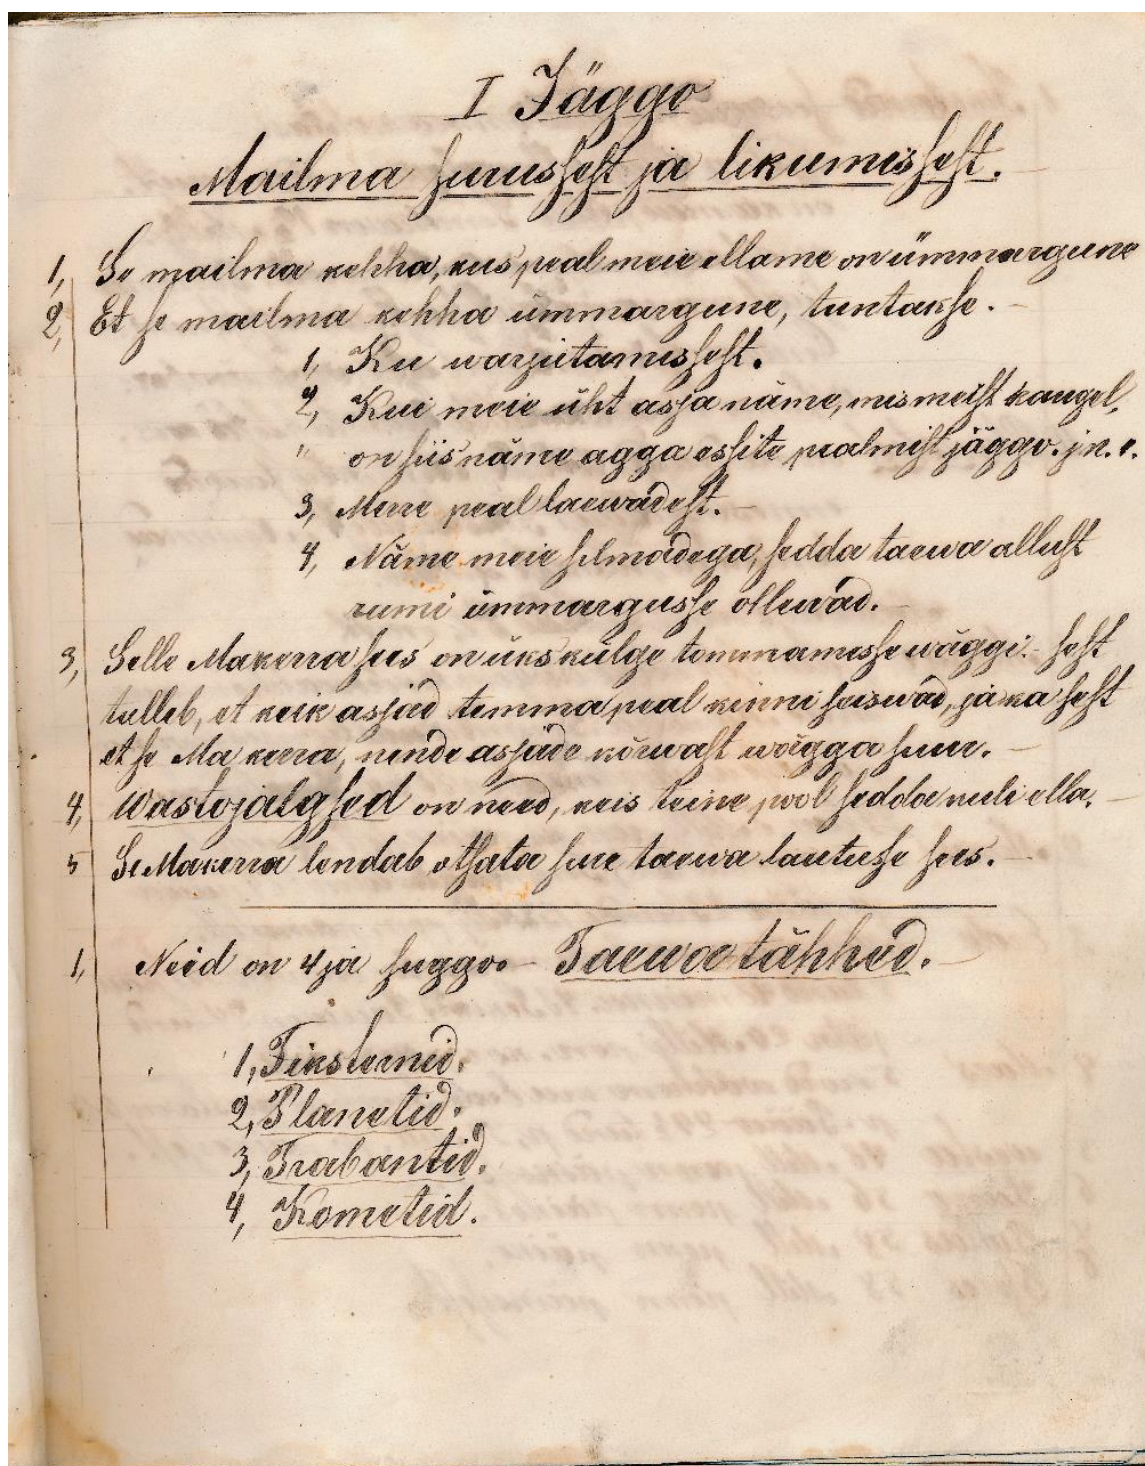 I Jäggo
Mailma surussest ja likumissest.
1, Se mailma kehha, kus peal meie ellame on ümmargune
2, Et se mailma kehha ümmargune, tuntakse.
1, Ku warjutamissest.
2, Kui meie üht asja näme, mis meist kaugel,
" on siis näme agga essite pealmist jäggo. j.n.e.
3, Merre peal laewadest.
4, Näme meie silmadega, sedda taewa allust
rumi ümmargusse ollewad.
3, Selle Makerra sees on üks külge tommamisse wäggi. sest
tulleb, et keik asjad temma peal kinni seiswad, ja ka sest
et se Ma kerra, nende asjade kõrwast wägga suur.
4, Wastojalgsed on need, keis teine pool sedda kuli ella.
5 Se Makerra lendab otsata sure taewa lautuse sees.
1, Neid on 4ja suggo. Taewa tähhed.
1, Fiksternid.
2, Planetid.
3, Trabantid.
4, Kometid.